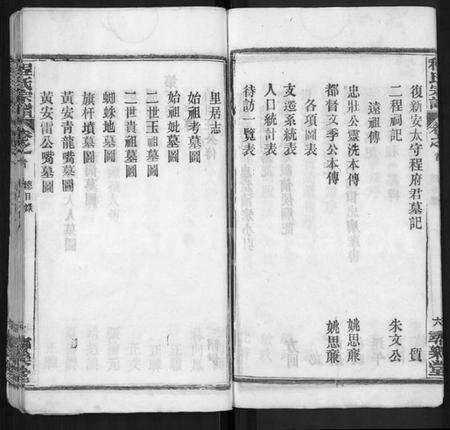 程氏宗譜
卷之首
六
彝樂堂
復新安太守程府君墓記
二程祠記 朱文公
遠祖傳
忠壯公靈洗本傳 姚思廉
都督文季公本傳 姚思廉
各項圖表
支遷系統表
人口統計表
待訪一覽表
里居志
始祖考墓圖
始祖妣墓圖
二世玉祖墓圖
二世貴祖墓圖
蜘蛛地墓圖
旗杆墳墓圖
黃安青龍嘴墓圖
黃安雷公嘴墓圖
程氏宗譜
卷之首
總目錄